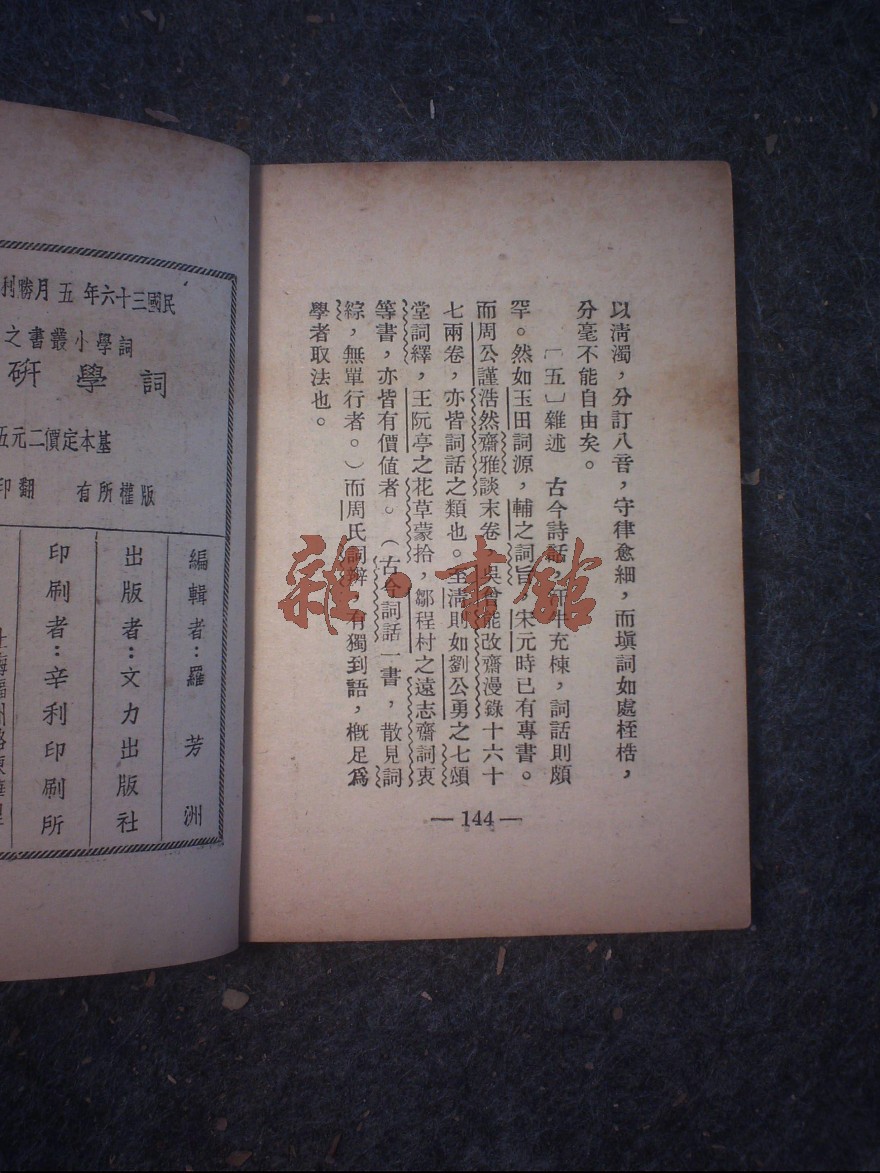 以清濁，分訂八音，守律愈細，而塡詞如處桎梏，
分毫不能自由矣。
〔五〕雜述　古今詩話，汗牛充棟，詞話則頗
罕。然如玉田詞源，輔之詞旨，宋元時已有專書。
而周公謹浩然齋雅談末卷，吳曾能改齋漫錄十六十
七兩卷，亦皆詞話之類也。至淸則如劉公勇之七頌
堂詞繹，王阮亭之花草蒙拾，鄒程村之遠志齋詞衷
等書，亦皆有價值者。（古今詞話一書，散見詞
綜，無單行者。）而周氏詞辨，有獨到語，槪足爲
學者取法也。
— 144 —
民國三十六年五月勝利
詞學小叢書之
詞學研
基本定價二元五
版權所有　翻印
編輯者：羅芳洲
出版者：文力出版社
印刷者：辛利印刷所
雜·書館